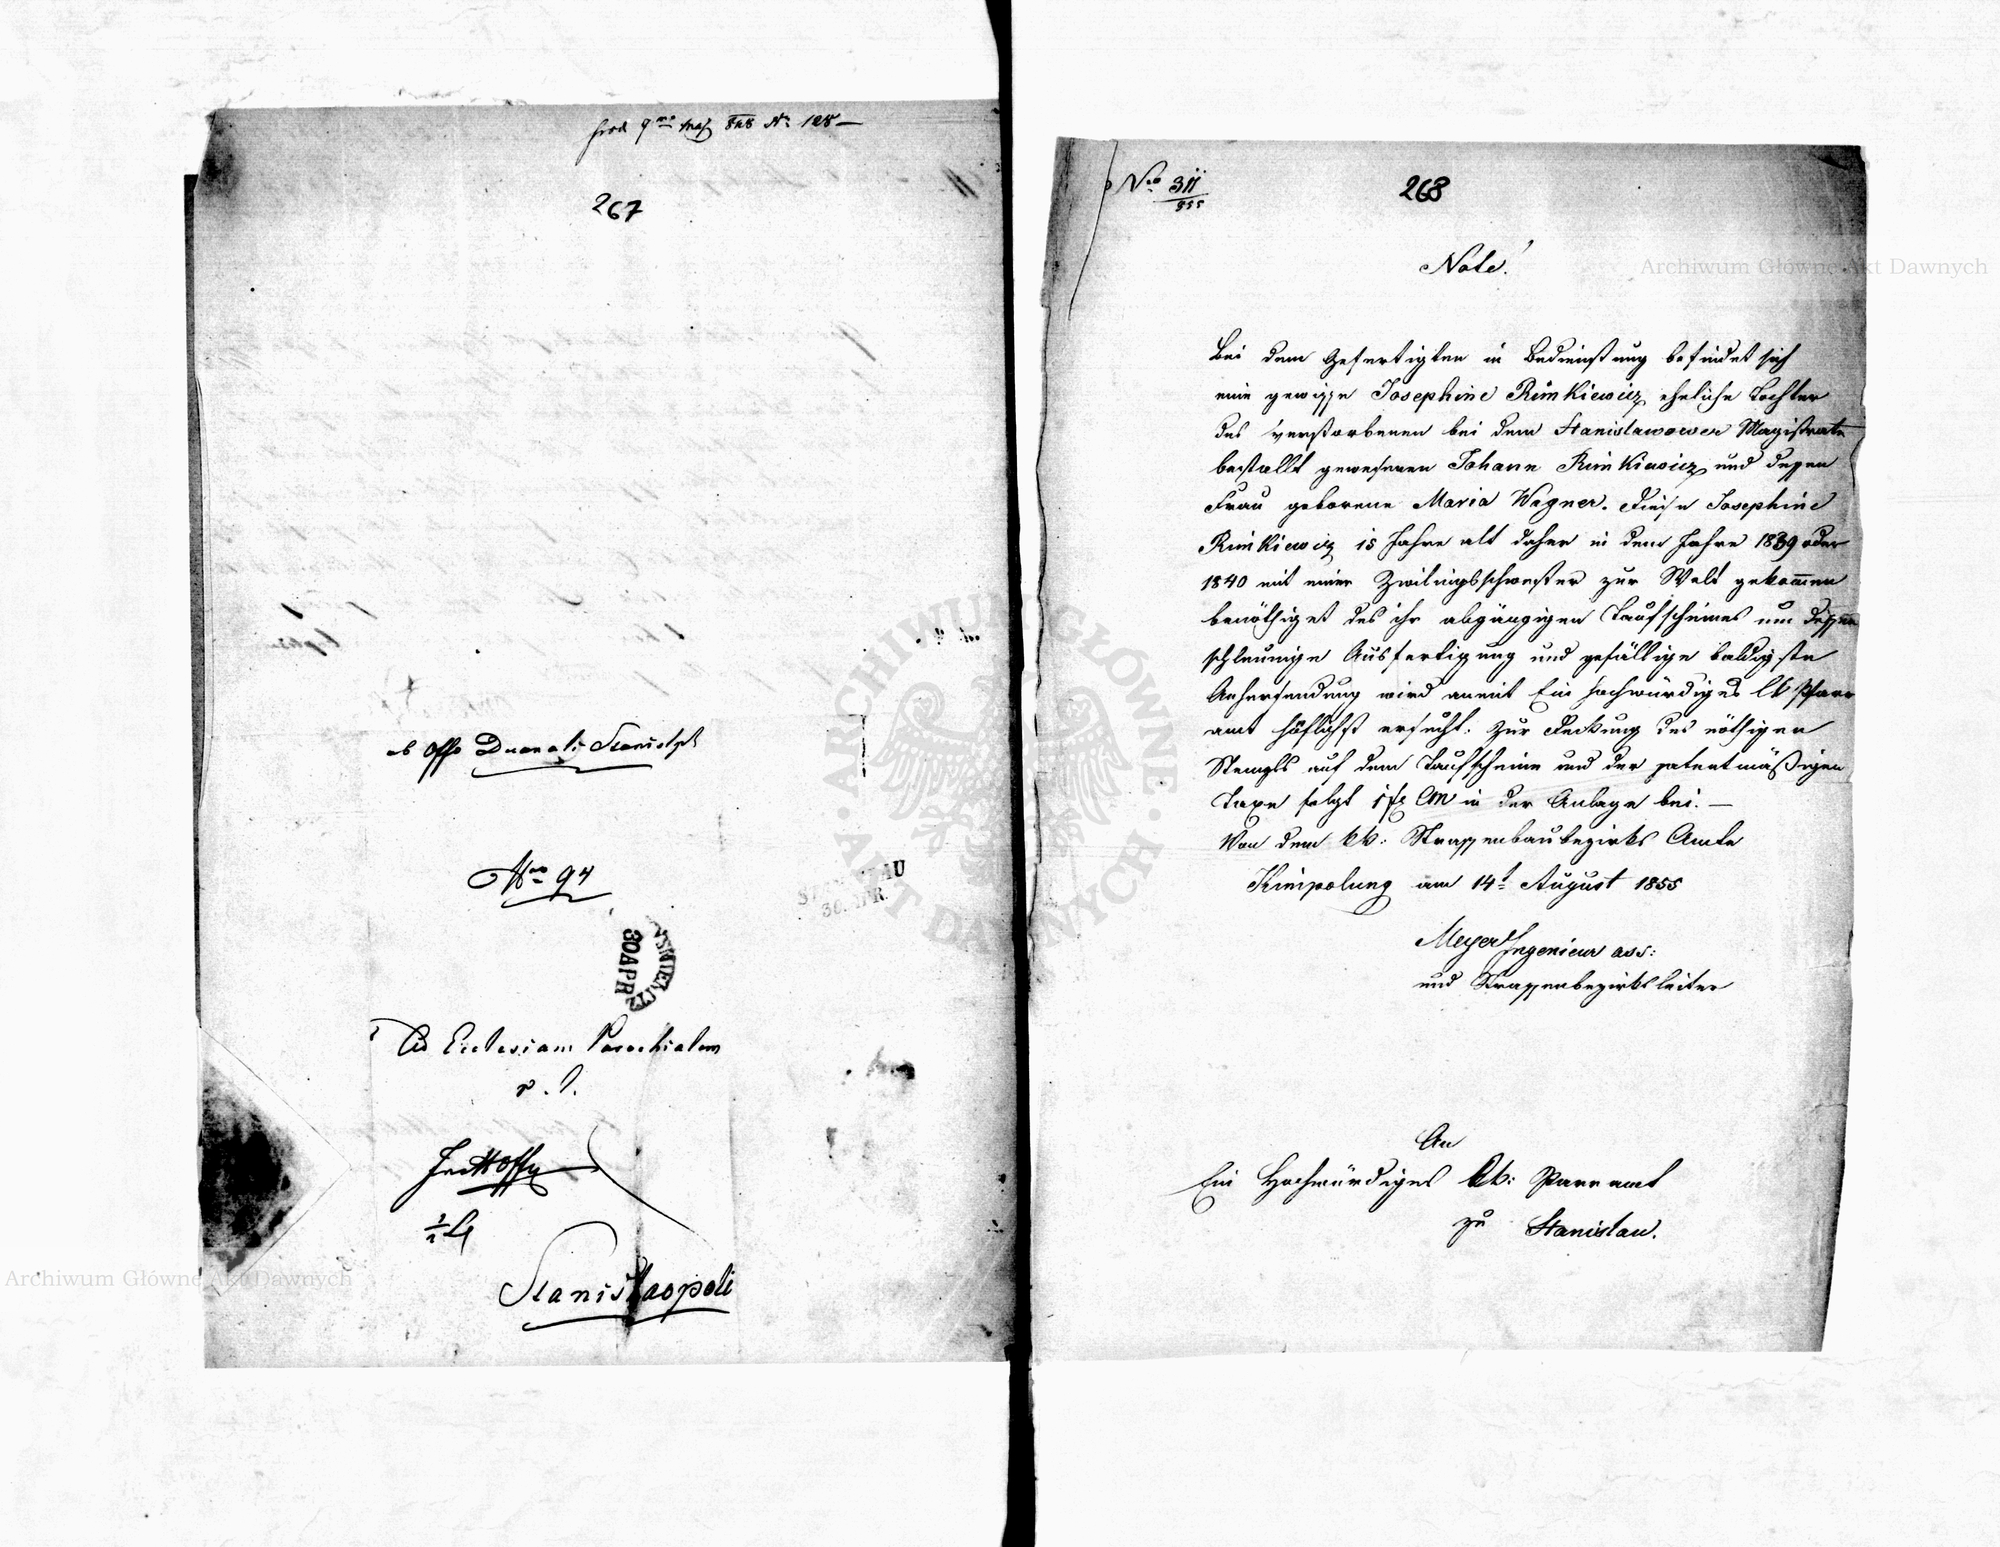 267
ab Offo Decanali Stanislp̄li
Nro 94
30 APR
Ad Ecclesiam Parochialem
r. l.
Stanislaopoli
STANISLAU
30. APR.
Nro 311/855
268
Note!
Bei dem Gefertigten in Bedienstung befindet sich
eine gewisse Josephine Rimkiewicz eheliche Tochter
des verstorbenen bei dem Stanislawower Magistrate
bestallt gewesenen Johann Rimkiewicz und dessen
Frau geborene Maria Wagner. Diese Josephine
Rimkiewicz 15 Jahre alt daher in dem Jahre 1839 oder
1840 mit einer Zwilingsschwester zur Welt gekom̄en
benöthiget des ihr abgängigen Taufscheines um dessen
schleunige Ausfertigung und gefällige baldigste
Anhersendung wird anmit Ein hochwürdiges lt Pfarr
amt höflichst ersucht. Zur Deckung des nöthigen
Stempls auf dem Taufscheine und der patentmäßigen
Taxe folgt 1 f CM in der Anlage bei. —
Von dem kk: Strassenbaubezirks Amte
Kimpolung am 14t August 1855
Meyer Ingenieur ass:
und Strassenbezirksleiter
An
Ein Hochwürdiges kk: Pfarramt
zu Stanislau.
Archiwum Główne Akt Dawnych
Archiwum Główne Akt Dawnych
ARCHIWUM GŁÓWNE AKT DAWNYCH